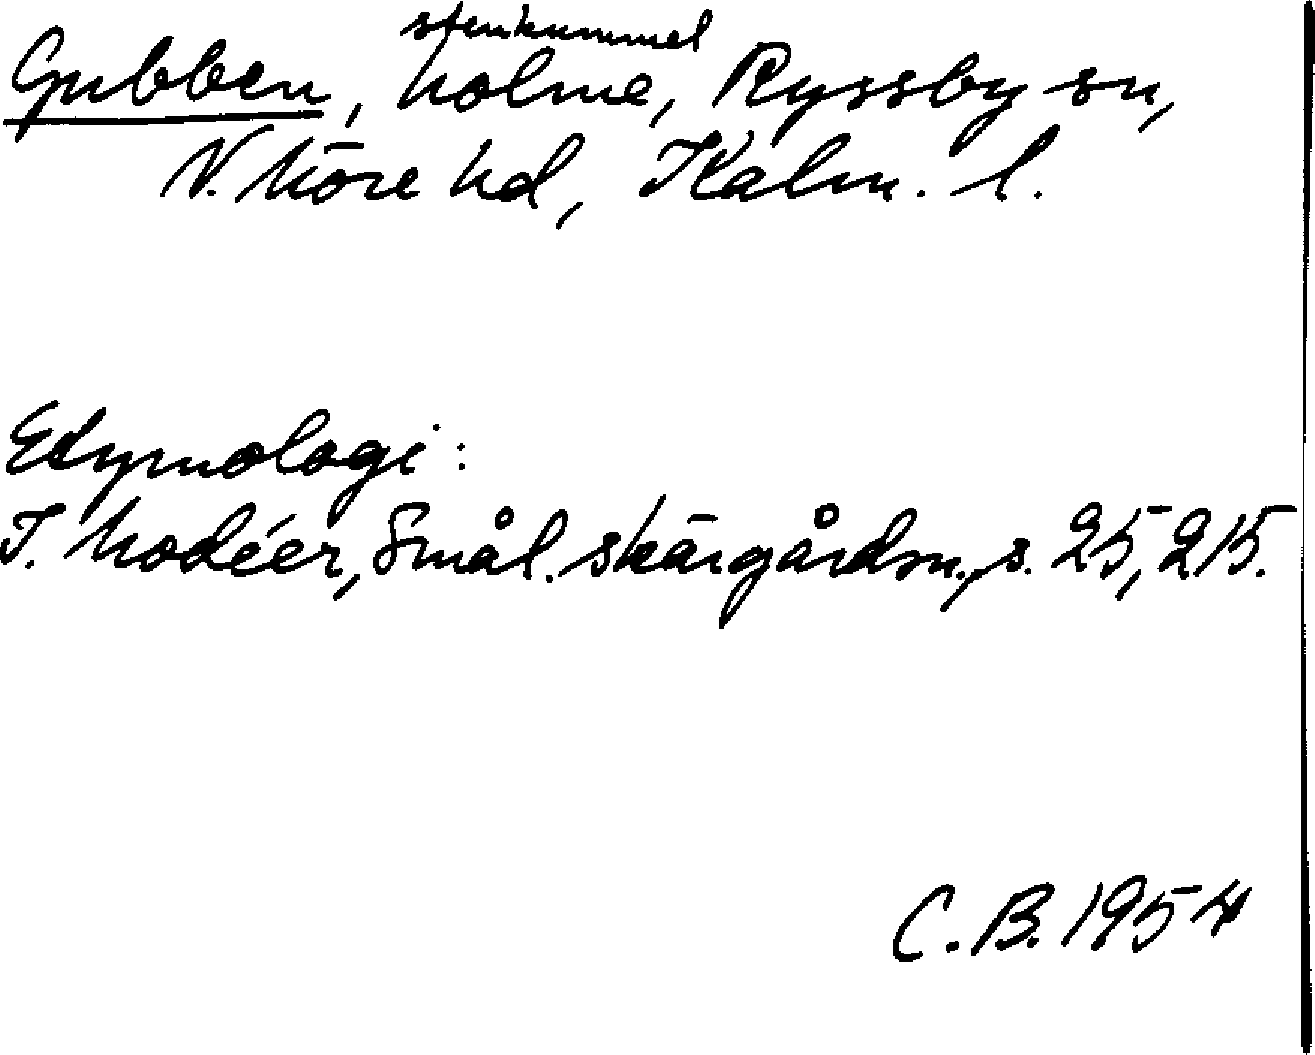 stenkummel
Gubben, holme, Ryssby sn,
N. Möre hd, Kalm. l.
Etymologi:
I. Modéer, Smål. skärgårdsn., s. 25, 215.
C. B. 1954